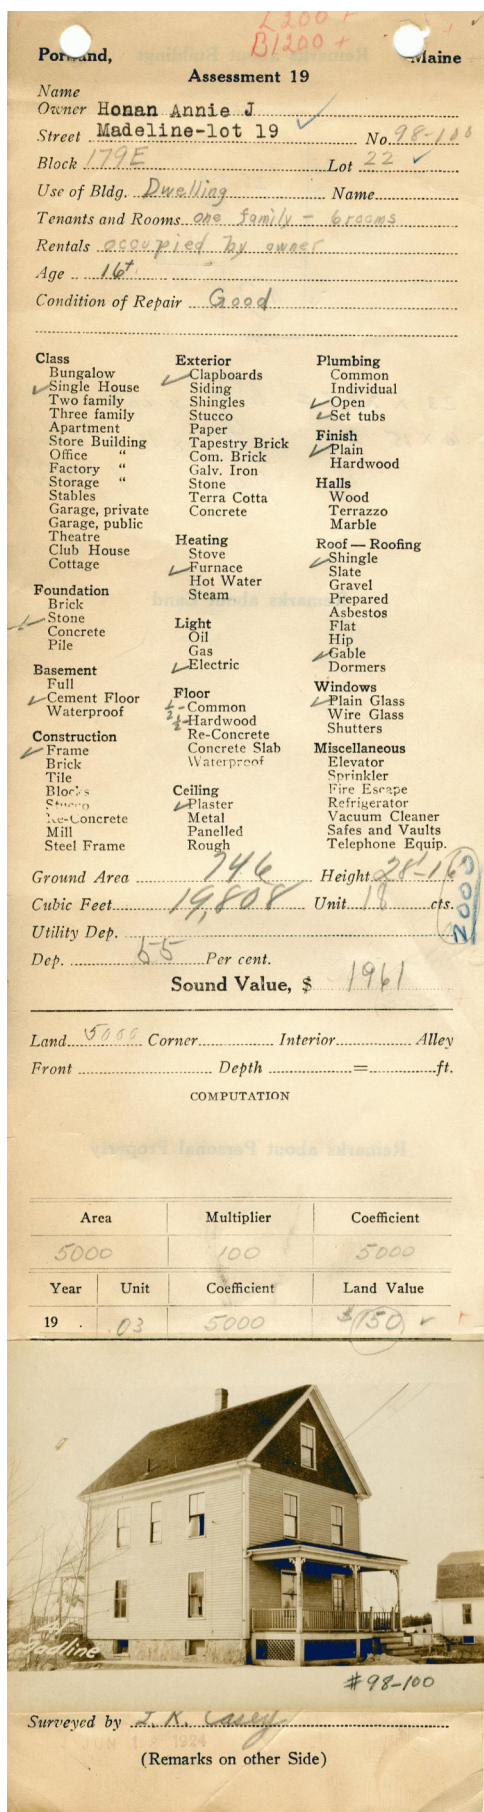 L200 +
B1200 +
Portland, Maine
Assessment 19
Name
Owner Honan Annie J
Street Madeline-lot 19 No. 98-100
Block 179E Lot 22
Use of Bldg. Dwelling Name
Tenants and Rooms one family - 6 rooms
Rentals occupied by owner
Age 16+
Condition of Repair Good
Class
Bungalow
Single House
Two family
Three family
Apartment
Store Building
Office "
Factory "
Storage "
Stables
Garage, private
Garage, public
Theatre
Club House
Cottage
Foundation
Brick
Stone
Concrete
Pile
Basement
Full
Cement Floor
Waterproof
Construction
Frame
Brick
Tile
Blocks
Stucco
Re-Concrete
Mill
Steel Frame
Exterior
Clapboards
Siding
Shingles
Stucco
Paper
Tapestry Brick
Com. Brick
Galv. Iron
Stone
Terra Cotta
Concrete
Heating
Stove
Furnace
Hot Water
Steam
Light
Oil
Gas
Electric
Floor
½ - Common
½ - Hardwood
Re-Concrete
Concrete Slab
Waterproof
Ceiling
Plaster
Metal
Panelled
Rough
Plumbing
Common
Individual
Open
Set tubs
Finish
Plain
Hardwood
Halls
Wood
Terrazzo
Marble
Roof — Roofing
Shingle
Slate
Gravel
Prepared
Asbestos
Flat
Hip
Gable
Dormers
Windows
Plain Glass
Wire Glass
Shutters
Miscellaneous
Elevator
Sprinkler
Fire Escape
Refrigerator
Vacuum Cleaner
Safes and Vaults
Telephone Equip.
Ground Area 746 Height 28'-16
Cubic Feet 19,808 Unit 18 cts.
2000
Utility Dep.
Dep. 55 Per cent.
Sound Value, $ 1961
Land 5000 Corner Interior Alley
Front Depth = ft.
COMPUTATION
Area Multiplier Coefficient
5000 100 5000
Year Unit Coefficient Land Value
19 . .03 5000 $150
41
Madline
#98-100
Surveyed by J. K. Casey
JUN 1924
(Remarks on other Side)